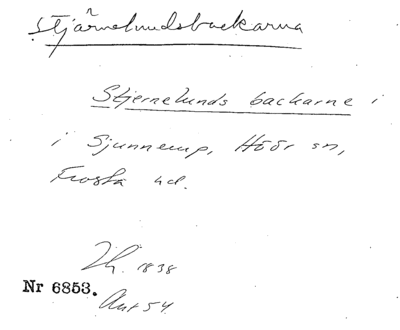 Stjärnelundsbackarna
Stjernelunds backarne i
i Sjunnerup, Höör sn,
Frosta hd.
1838
Nr 6853.
Ant 54.